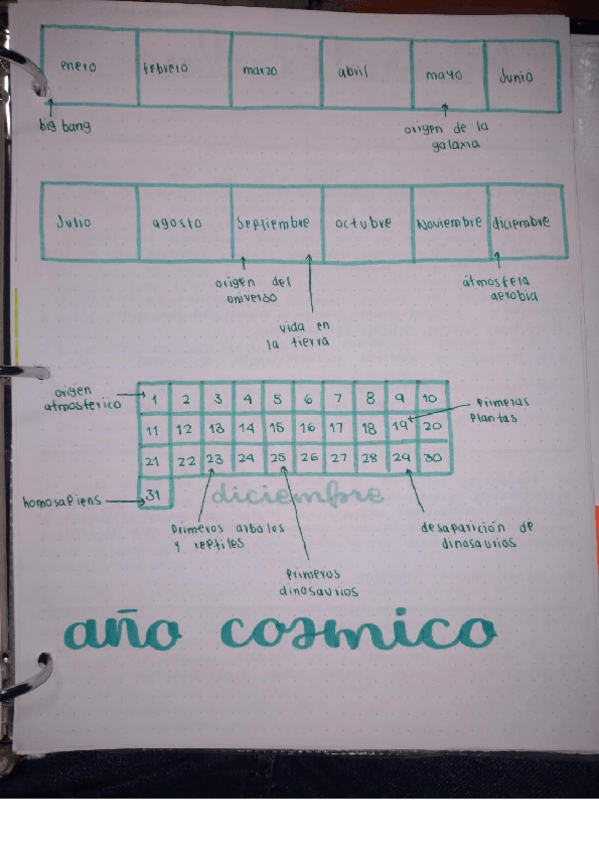 enero febrero marzo abril mayo Junio
big bang
origen de la
galaxia
Julio agosto Septiembre octubre Noviembre diciembre
origen del
universo
vida en
la tierra
átmosfera
aerobia
origen
atmosferico
1 2 3 4 5 6 7 8 9 10
Primeras
Plantas
11 12 13 14 15 16 17 18 19 20
21 22 23 24 25 26 27 28 29 30
31
homosapiens
diciembre
Primeros arboles
y reptiles
desaparición de
dinosaurios
Primeros
dinosaurios
año cosmico